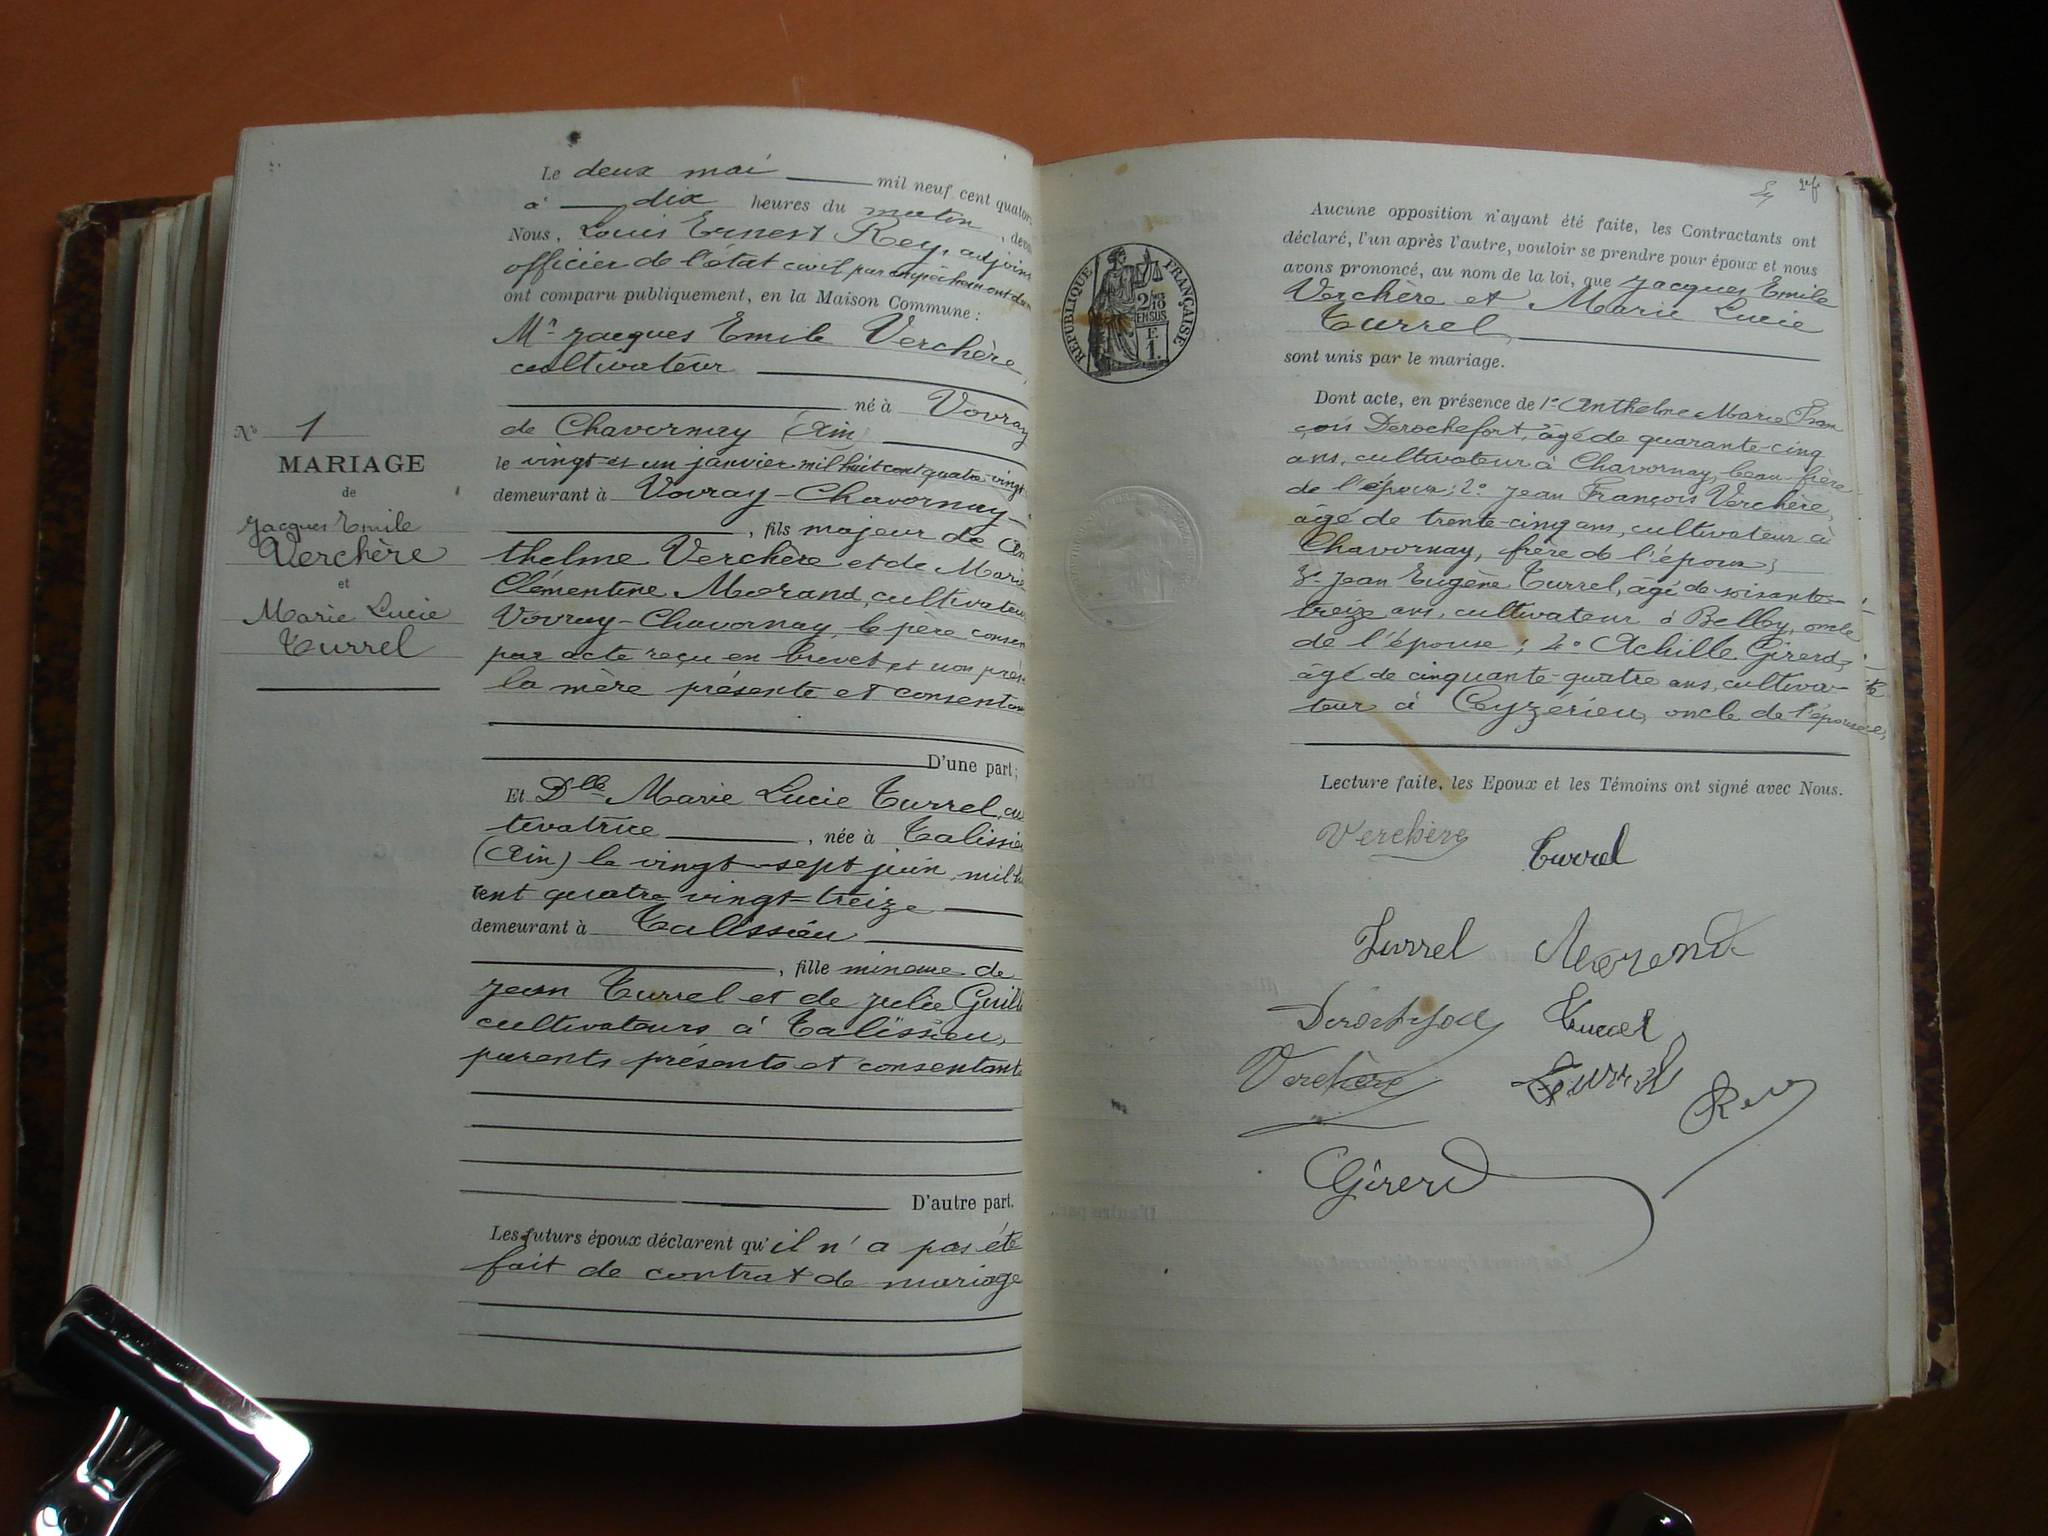 Le deux mai mil neuf cent quator
à dix heures du matin, deva
Nous, Louis Ernest Rey, adjoint
officier de l'état civil par empêchement du
ont comparu publiquement, en la Maison Commune :
Mr Jacques Emile Verchère,
cultivateur
né à Vovray
de Chavornay (Ain)
le vingt et un janvier mil huit cent quatre-vingt
demeurant à Vovray-Chavornay
, fils majeur de An
thelme Verchère et de Marie
Clémentine Morand, cultivateurs
Vovray-Chavornay, le père consen
par acte reçu en brevet et non prés
la mère présente et consentan
D'une part ;
Et Dlle Marie Lucie Turrel, cul
tivatrice, née à Talissieu
(Ain) le vingt-sept juin mil hu
cent quatre vingt-treize
demeurant à Talissieu
, fille mineure de
Jean Turrel et de Julie Guill
cultivateurs à Talissieu,
parents présents et consentants
D'autre part.
Les futurs époux déclarent qu'il n'a pas été
fait de contrat de mariage
No 1
MARIAGE
de
Jacques Emile
Verchère
et
Marie Lucie
Turrel
RÉPUBLIQUE FRANÇAISE
2/10
EN SUS
E.
1.
Aucune opposition n'ayant été faite, les Contractants ont
déclaré, l'un après l'autre, vouloir se prendre pour époux et nous
avons prononcé, au nom de la loi, que Jacques Emile
Verchère et Marie Lucie
Turrel
sont unis par le mariage.
Dont acte, en présence de 1° Anthelme Marie Fran
çois Derochefort, âgé de quarante-cinq
ans, cultivateur à Chavornay, beau-frère
de l'époux ; 2° Jean François Verchère,
âgé de trente-cinq ans, cultivateur à
Chavornay, frère de l'époux ;
3° Jean Eugène Turrel, âgé de soixante-
treize ans, cultivateur à Belley, oncle
de l'épouse ; 4° Achille Girerd,
âgé de cinquante-quatre ans, cultiva-
teur à Ceyzérieu, oncle de l'épouse,
Lecture faite, les Epoux et les Témoins ont signé avec Nous.
Verchère Turrel
Turrel Morand
Derochefort Turrel
Verchère Turrel Rey
Girerd